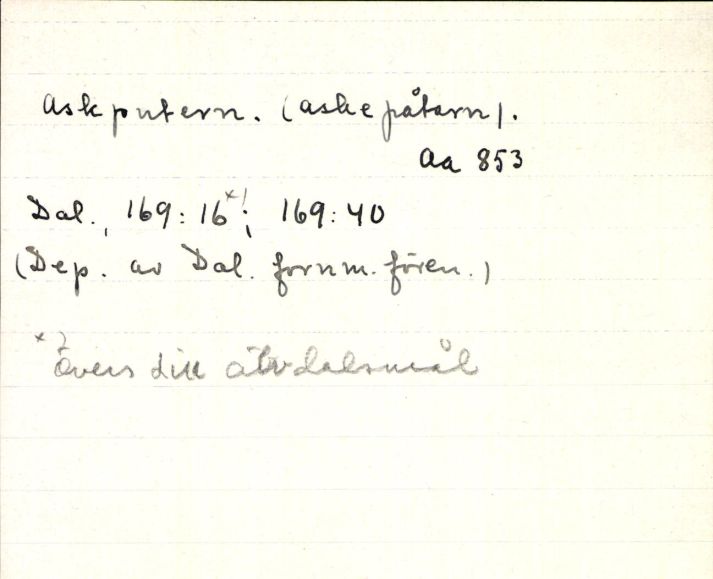 Askputern. (askepåtarn).
Aa 853
Dal., 169:16 x); 169:40
(Dep. av Dal. fornm. fören.)
x) Övers till älvdalsmål